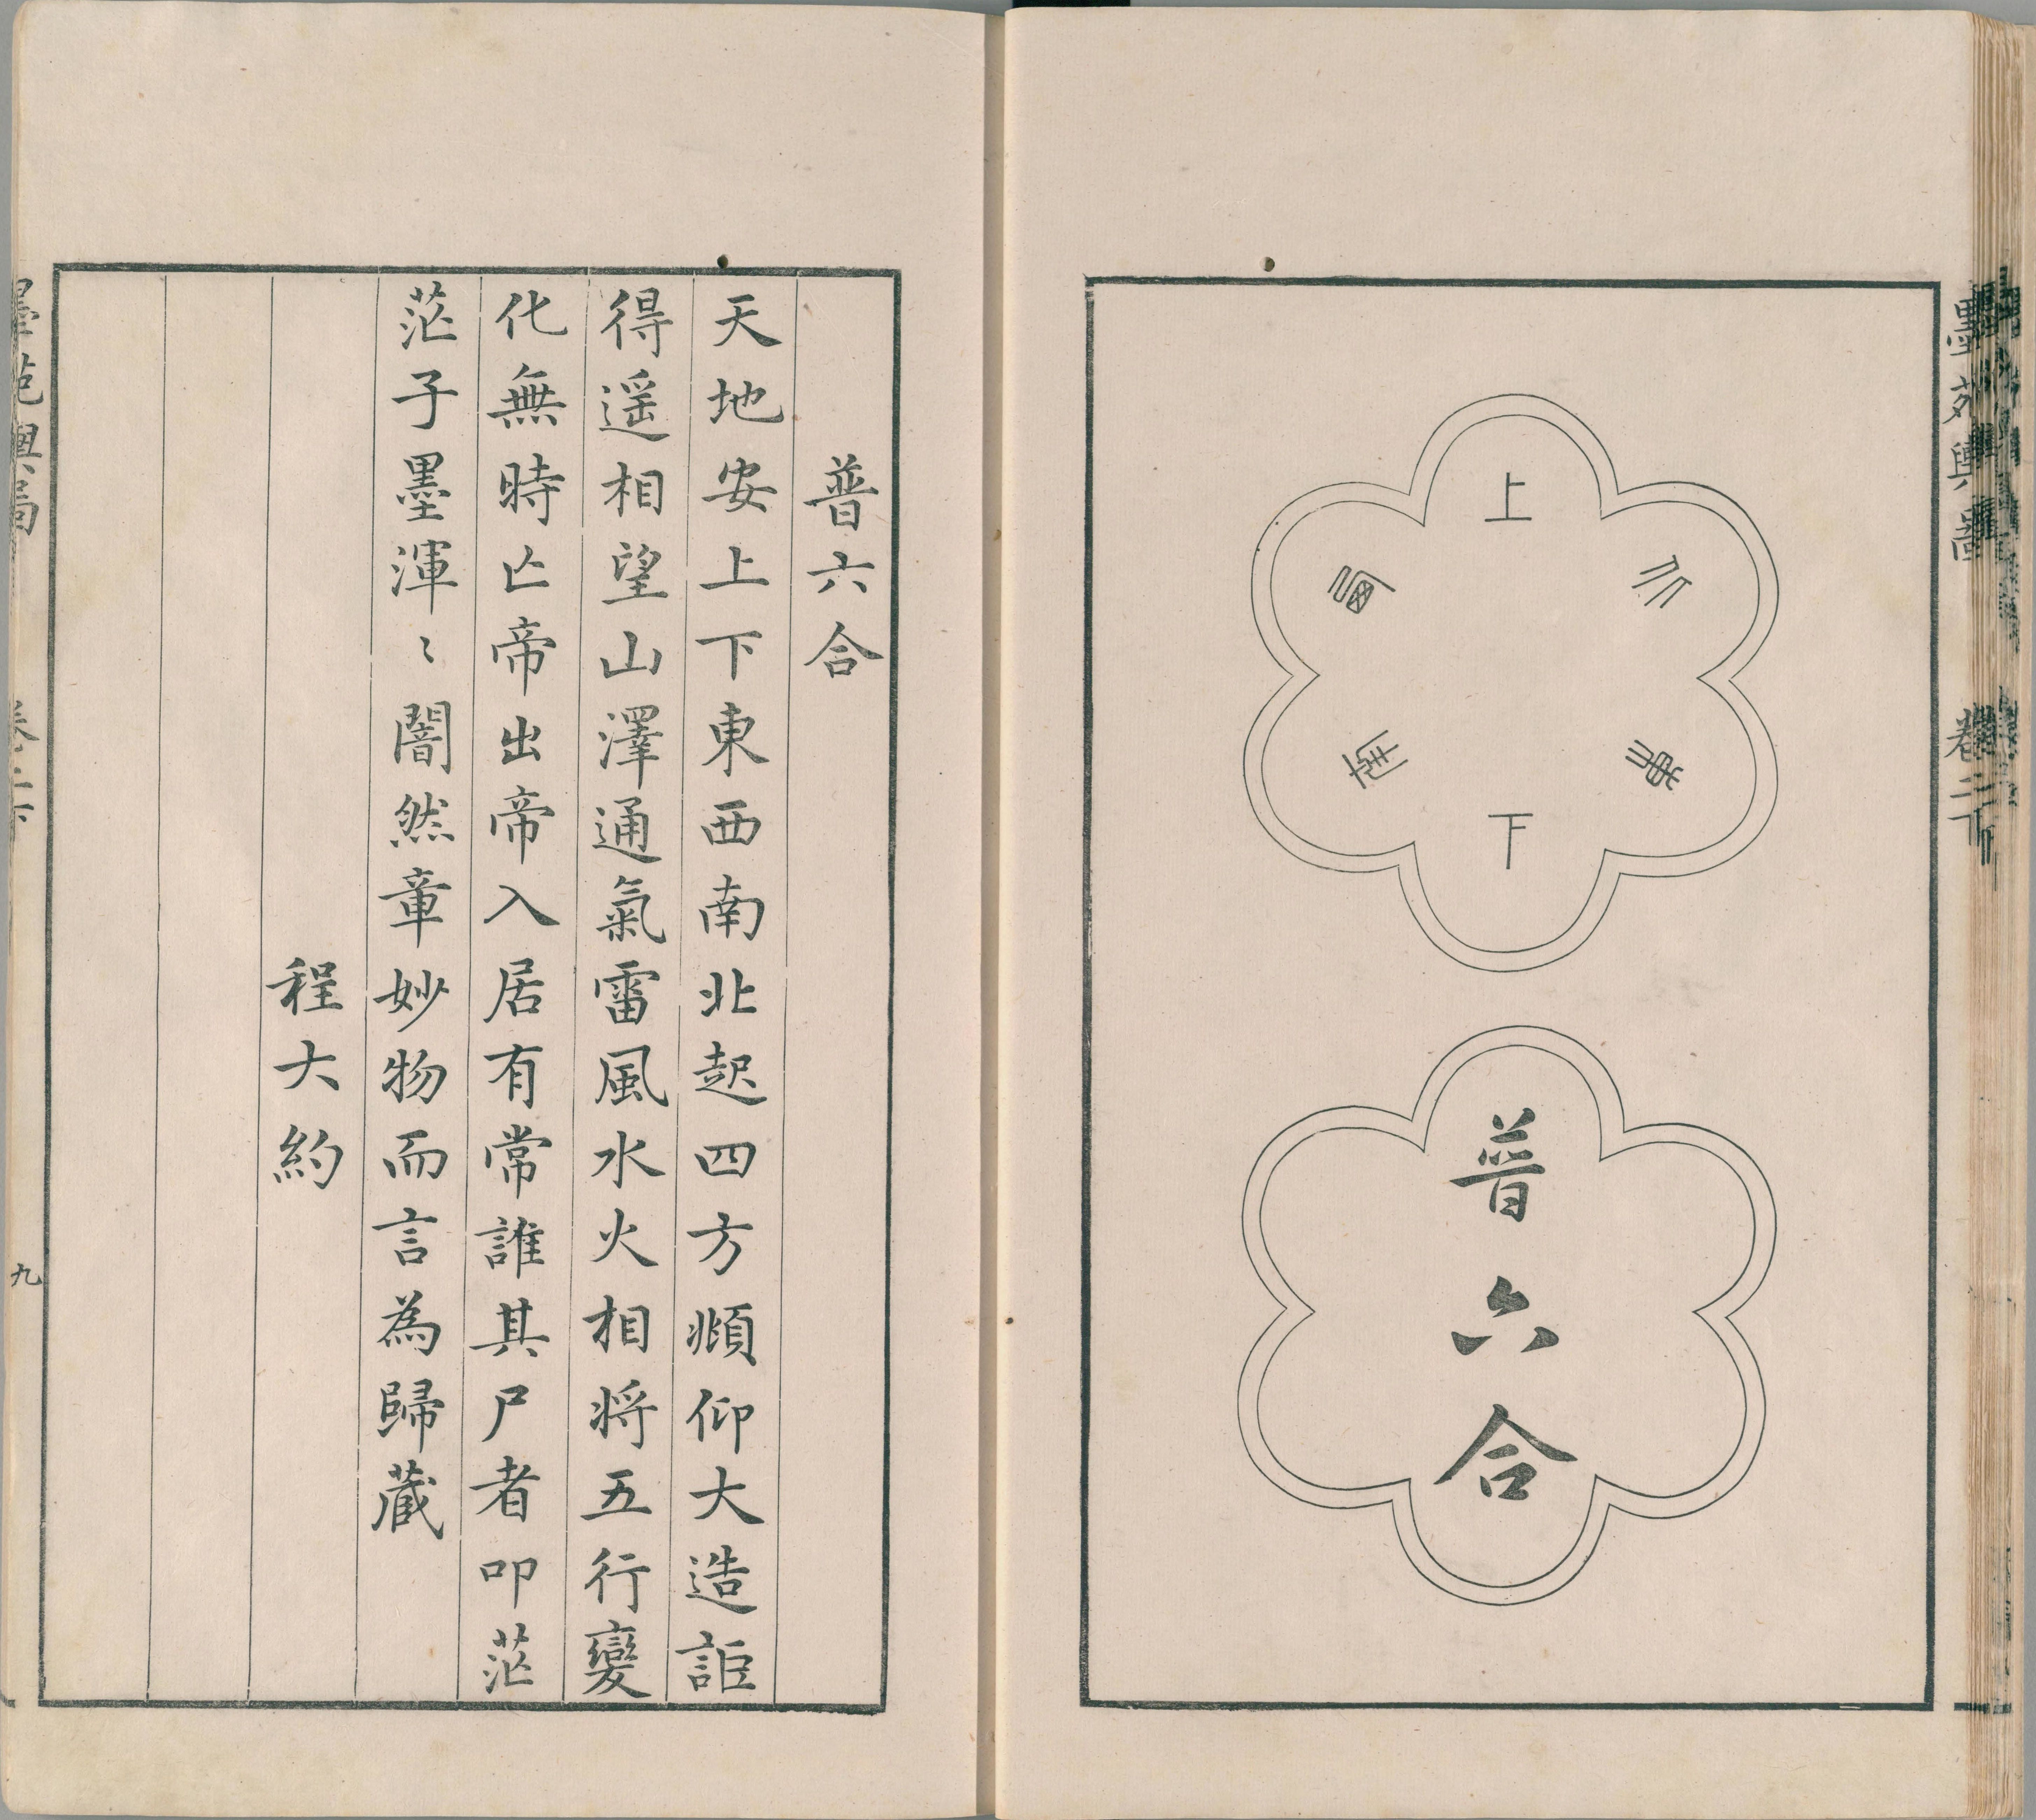 墨苑輿圖
卷二下
上
北
東
下
南
西
普
六
合
普六合
天地安上下東西南北起四方頫仰大造詎
得遥相望山澤通氣雷風水火相將五行變
化無時亡帝出帝入居有常誰其尸者叩茫
茫子墨渾〻闇然章妙物而言為歸藏
程大約
九